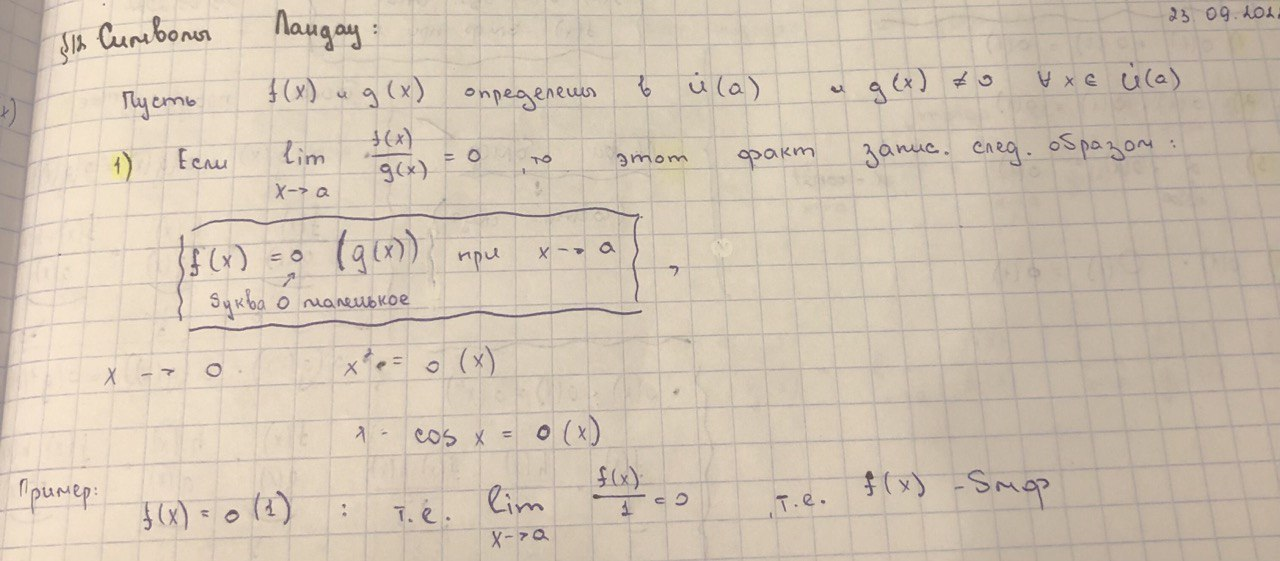 23 09.202
§12 Символы Ландау:
Пусть f(x) и g(x) определены в U̇(a) и g(x) ≠ 0 ∀ x ∈ U̇(a)
1) Если lim x→a f(x)/g(x) = 0, то этот факт запис. след. образом:
f(x) = o (g(x)) при x → a,
буква о маленькое
x → 0 x² = o (x)
1 - cos x = o (x)
Пример: f(x) = o (1) : т.е. lim x→a f(x)/1 = 0, т.е. f(x) - бмф